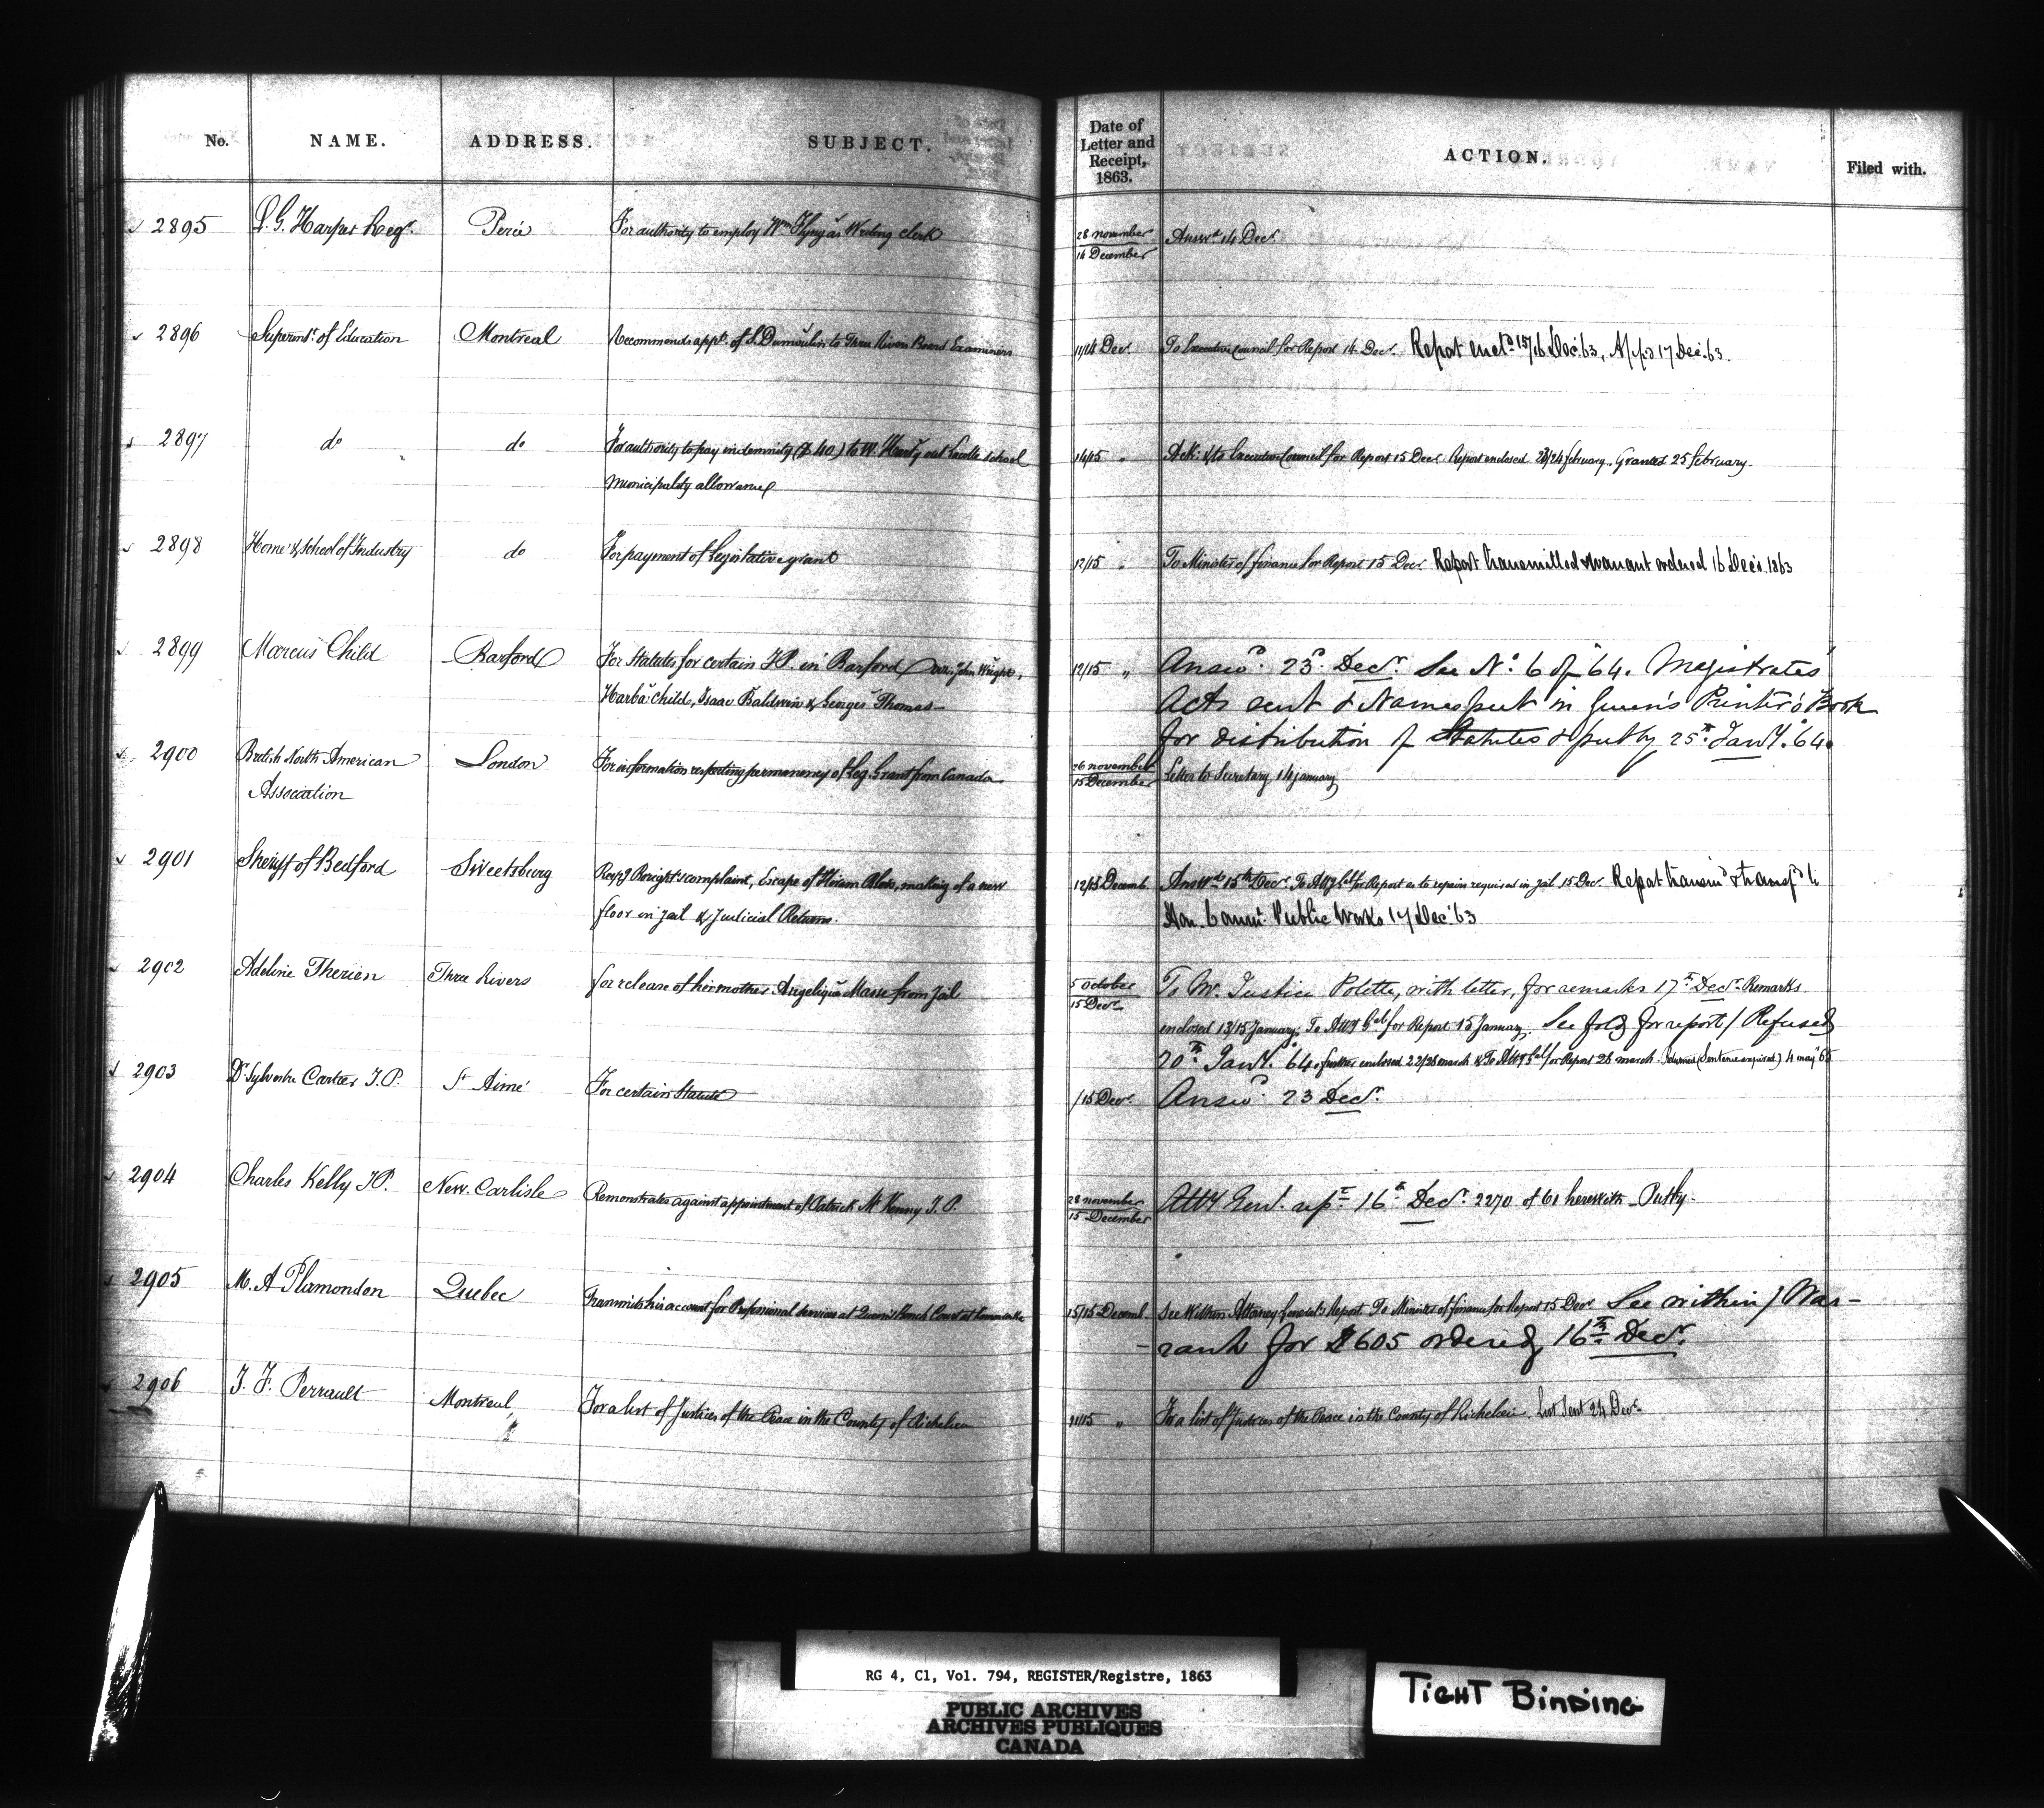 No. NAME. ADDRESS. SUBJECT. Date of Letter and Receipt, 1863. ACTION. Filed with.
2895 L. G. Harper Regr. Percé For authority to employ Wm as Writing clerk 28 november / 14 December Answd 14 Decr
2896 Superindt. of Education Montreal Recommends appt. of S. Dumoulin to Three Rivers Board Examiners 11/14 Decr. To Executive Council for Report 14 Decr. Report encld 15/16 Dec. 63, App'd 17 Dec. 63.
2897 do do For authority to pay indemnity ($40) to W. out Lacolle School
Municipality allowance
14/15 " Ack: & to Executive Council for Report 15 Decr. Report enclosed 23/24 february. Granted 25 february.
2898 Home & School of Industry do For payment of Legislative grant 12/15 " To Minister of finance for Report 15 Decr. Report transmitted & warrant ordered 16 Dec. 1863
2899 Marcus Child Barford For Statutes for certain J.P. in Barford, viz: John Wright,
Child, Isaac Baldwin & George Thomas
12/15 " Answd. 23d. Decr. See No. 6 of '64. Magistrates'
Acts sent & Names put in Queen's Printer's Book
for distribution of Statutes & put by 25th Jany. '64.
2900 British North American London For information respecting permanency of Leg. Grant from Canada 26 november / 15 December Letter to Secretary 14 january
Association
2901 Sheriff of Bedford Sweetsburg Respg complaint, Escape of Hiram, making of a new
floor in jail & Judicial Returns.
12/15 Decemb. Answd 15th Decr. To Atty Genl for Report as to repairs required in Jail 15 Decr. Report transmd & transfd to
Hon. Commr. Public Works 17 Dec. 63
2902 Adeline Therien Three Rivers for release of her mother Angelique Masse from Jail 5 October / 15 Decr. To Mr. Justice Polette, with letter, for remarks 17th Decr. Remarks
enclosed 13/15 January. To Atty Genl for Report 15 January. See fold for report / Refused
20th Jany. '64. further enclosed 22/26 march & To Atty Genl for Report 26 march. Returned (Sentence expired) 4 may 65
2903 Dr. Sylvestre Cartier J.P. St Aimé For certain Statute /15 Decr. Answd. 23 Decr.
2904 Charles Kelly J.P. New Carlisle Remonstrates against appointment of Patrick McKenny J.P. 28 november / 15 December Atty Genl. rept 16th Decr. 2270 of 61 herewith - Put by.
2905 M. A Plamondon Quebec Transmits his account for Professional services at Queen's Bench Court at Kamouraska 15/15 Decemb. See Within Attorney General's Report. To Minister of finance for Report 15 Decr. See within / War-
-rant for $605 ordered, 16th Decr.
2906 J. F. Perrault Montreal For a list of Justices of the Peace in the County of Richelieu 11/15 " For a list of Justices of the Peace in the County of Richelieu. List Sent 24 Decr.
RG 4, C1, Vol. 794, REGISTER/Registre, 1863
PUBLIC ARCHIVES
ARCHIVES PUBLIQUES
CANADA
TIGHT BINDING